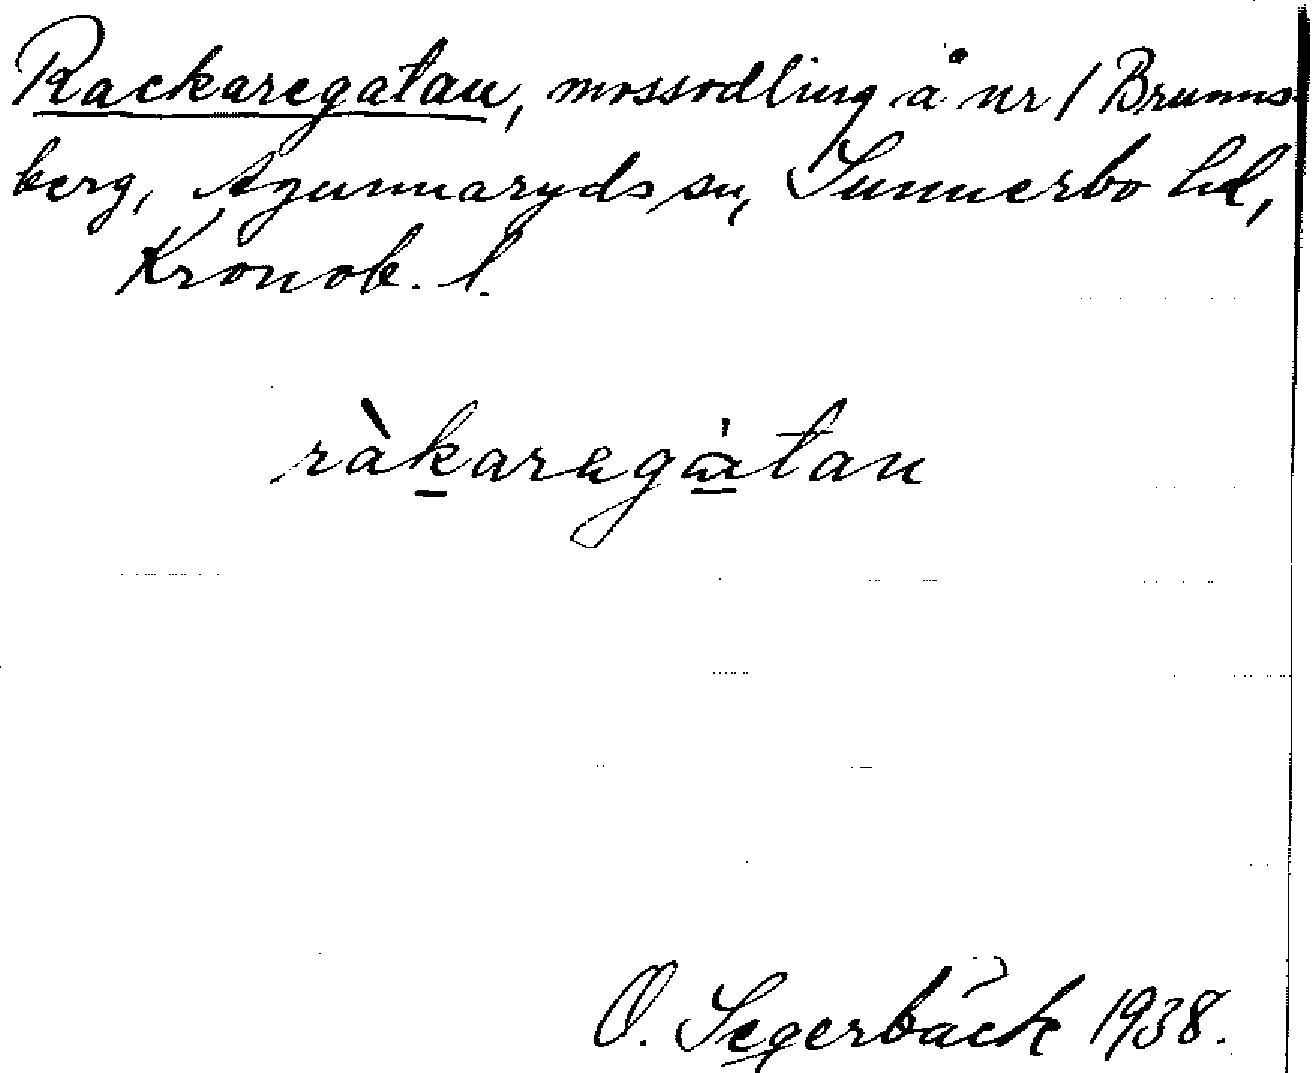 Rackaregatan, mossodling å nr 1 Brunns-
berg, Agunnaryds sn, Sunnerbo hd,
Kronob. l.
ràkaragàtan
O. Segerbäck 1938.